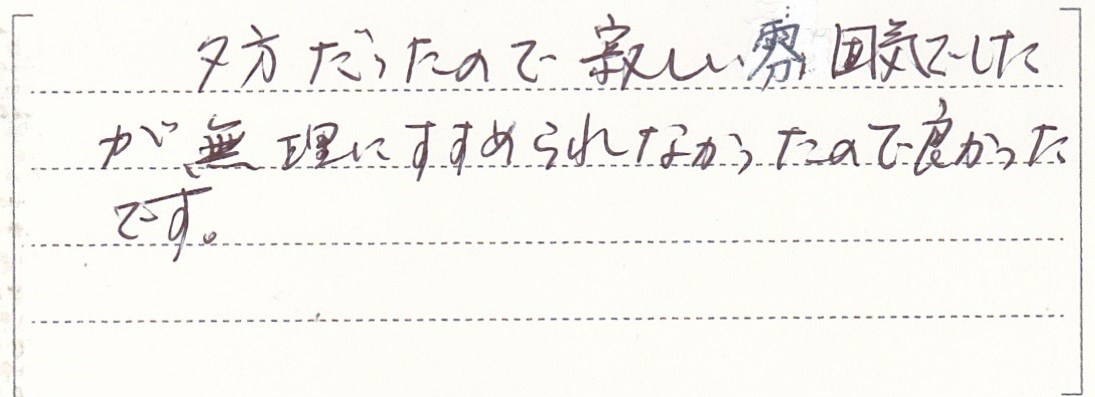 夕方だったので寂しい雰囲気でした
が無理にすすめられなかったので良かった
です。